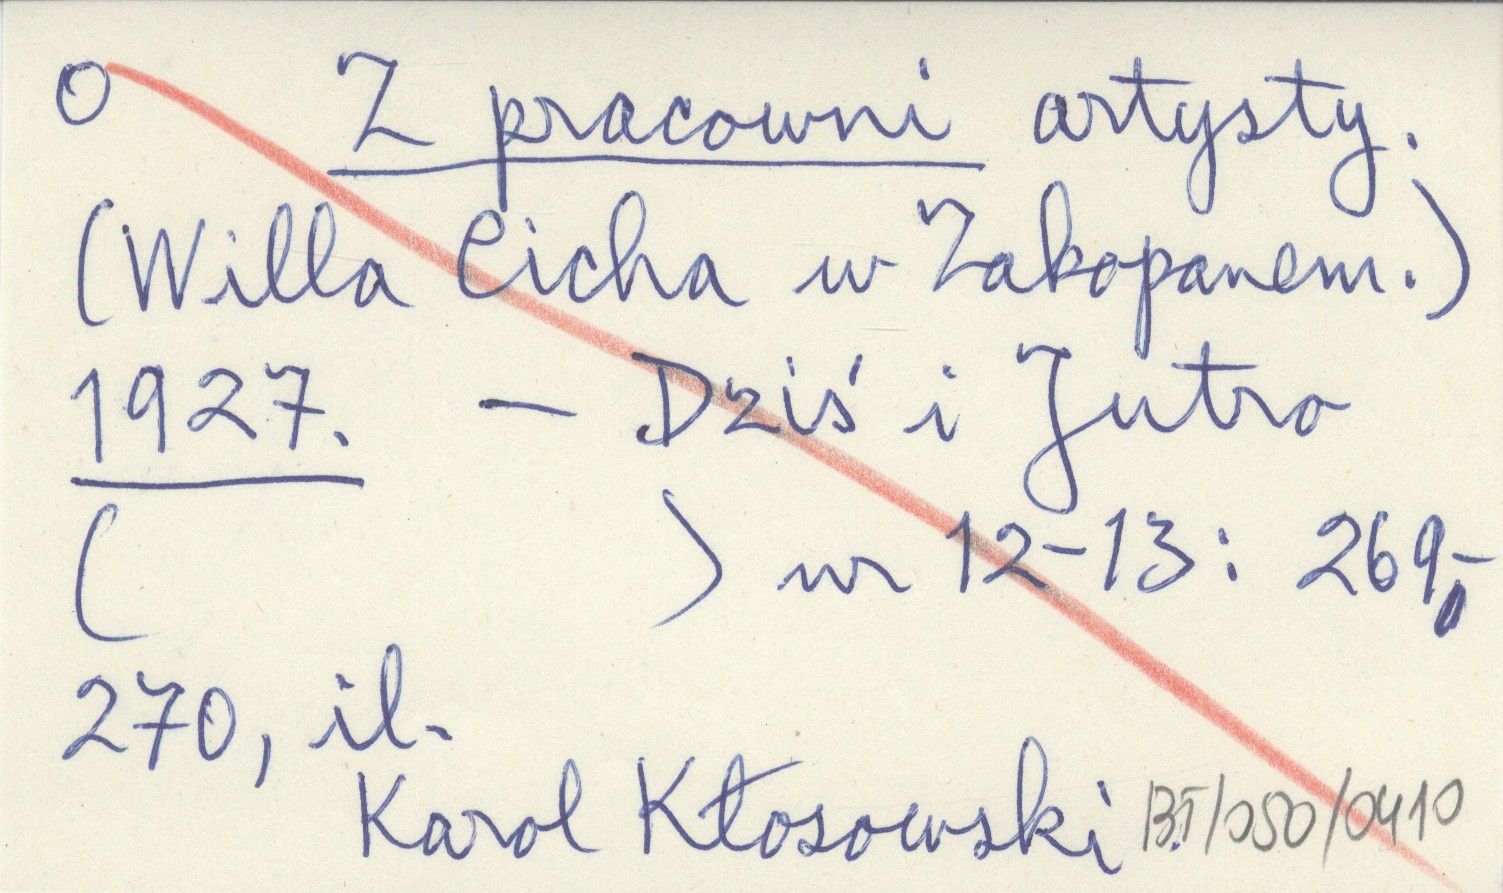 O Z pracowni artysty.
(Willa Cicha w Zakopanem.)
1927. - Dziś i Jutro
( ) nr 12-13: 269,-
270, il.
Karol Kłosowski. BT/050/0410